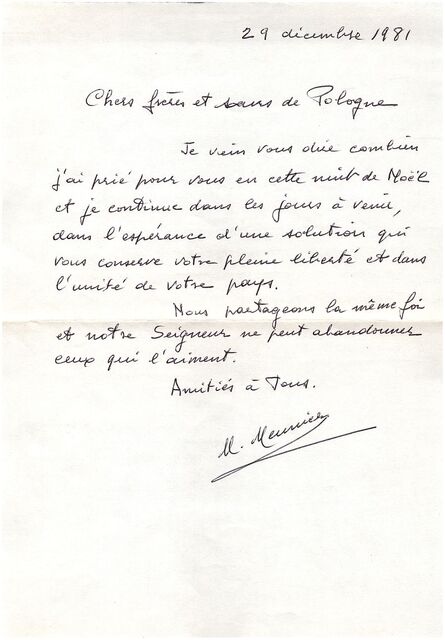 29 décembre 1981
Chers frères et sœurs de Pologne
Je viens vous dire combien
j'ai prié pour vous en cette nuit de Noël
et je continue dans les jours à venir,
dans l'espérance d'une solution qui
vous conserve votre pleine liberté et dans
l'unité de votre pays.
Nous partageons la même foi
et notre Seigneur ne peut abandonner
ceux qui l'aiment.
Amitiés à Tous.
M. Meunier